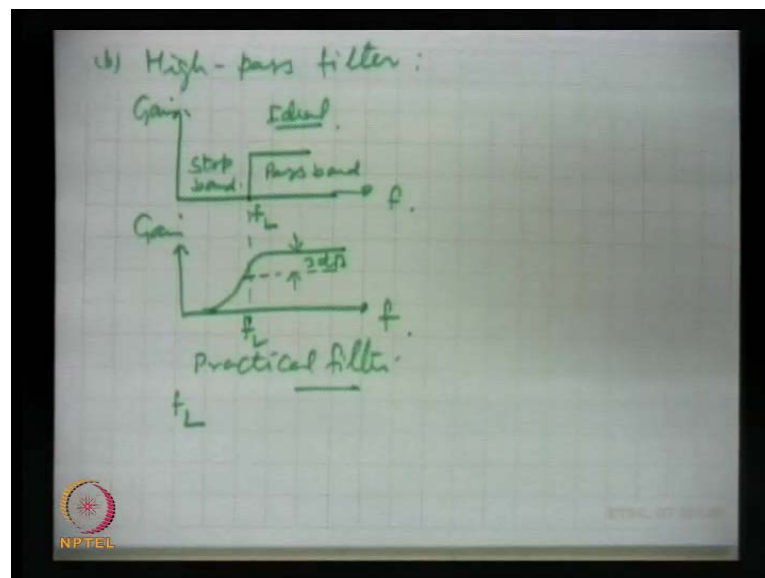 (b) High-pass filter :
Gain
Ideal.
Stop
band.
Pass band
f.
fL
Gain
3dB
f.
fL
Practical filter.
fL
NPTEL